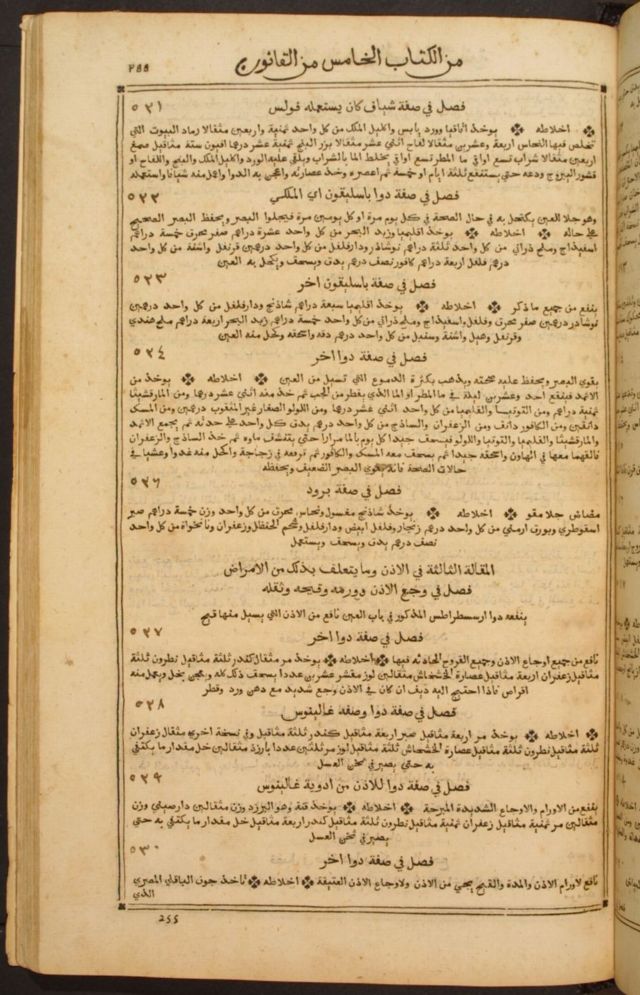 من الكتاب الخامس من القانون
٢٥٥
٥٢١
فصل في صفة شياف كان يستعمله فولس
اخلاطه يوخذ اقاقيا وورد يابس واكليل الملك من كل واحد ثمنية واربعين مثقالا رماد البيوت التي
تخلص فيها النحاس اربعة وعشرين مثقالا لفاح اثني عشر مثقالا بزر البنج ثمنية عشر درهما افيون ستة مثاقيل صمغ
اربعين مثقالا شراب تسع اواقي ما المطر تسع اواقي يخلط الما بالشراب ويلقي عليه الورد واكليل الملك والبنج واللفاح او
قشور اليبروج ودعه حتى يستنقع ثلثة ايام او خمسة ثم اعصره وخذ عصارته واعجن به الدوا واعمل منه شيافا واستعمله
٥٢٢
فصل في صفة دوا باسليقون اي الملكي
وهو جلا للعين يكتحل به في حال الصحة في كل يوم مرة او كل يومين مرة فيجلوا البصر ويحفظ البصر الصحيح
على حاله اخلاطه يوخذ اقليميا وزبد البحر من كل واحد عشرة دراهم صفر محرق خمسة دراهم
اسفيداج وملح دراني من كل واحد ثلثة دراهم نوشاذر ودارفلفل من كل واحد درهمين قرنفل واشنة من كل واحد
درهم فلفل اربعة دراهم كافور نصف درهم يدق ويسحق ويكحل به العين
٥٢٣
فصل في صفة باسليقون اخر
ينفع من جميع ما ذكر اخلاطه يوخذ اقليميا سبعة دراهم شاذنج ودارفلفل من كل واحد درهمين
نوشاذر درهمين صفر محرق وفلفل واسفيداج وملح دراني من كل واحد خمسة دراهم زبد البحر اربعة دراهم ملح هندي
وقرنفل وهيل واشنة وسنبل من كل واحد درهم دقه واسحقه وكحل منه العين
٥٢٤
فصل في صفة دوا اخر
يقوي البصر ويحفظ عليه صحته ويذهب بكثرة الدموع التي تسيل من العين اخلاطه يوخذ من
الاثمد فينقع احد وعشرين ليلة في ما المطر او الما الذي يقطر من الحب ثم خذ منه اثني عشر درهما ومن المارقشيثا
ثمنية دراهم ومن التوتيا والقليميا من كل واحد اثني عشر درهما ومن اللولو الصغار غير المثقوب درهمين ومن المسك
دانقين ومن الكافور دانق ومن الزعفران والساذج من كل واحد درهم يدق كل واحد على حدته ثم يجمع الاثمد
والمارقشيثا والقليميا والتوتيا واللولو فيسحق جيدا كل يوم بالما مرارا حتى يتنشف ماوه ثم خذ الساذج والزعفران
فالقهما معها في الهاون واسحقه جيدا ثم يسحق معه المسك والكافور ثم ترفعه في زجاجة واكحل منه غدوا وعشيا في
حالات الصحة فانه يقوي البصر الضعيف ويحفظه
٥٢٦
فصل في صفة برود
مضاض جلا مقو اخلاطه يوخذ شاذنج مغسول ونحاس محرق من كل واحد وزن خمسة دراهم صبر
اسقوطري وبورق ارمني من كل واحد درهم زنجار وفلفل ابيض ودارفلفل وشحم الحنظل وزعفران ونانخواة من كل واحد
نصف درهم يدق ويسحق ويستعمل
المقالة الثالثة في الاذن وما يتعلق بذلك من الامراض
فصل في وجع الاذن وورمه وقيحه وثقله
ينفعه دوا ارسسطراطس المذكور في باب العين نافع من الاذن التي يسيل منها قيح
٥٢٧
فصل في صفة دوا اخر
نافع من جميع اوجاع الاذن وجميع القروح الحادثة فيها اخلاطه يوخذ مر مثقال كندر ثلثة مثاقيل نطرون ثلثة
مثاقيل زعفران اربعة مثاقيل عصارة الخشخاش مثقالين لوز مقشر عشرين عددا يسحق ذلك كله ويعجن بخل ويعمل منه
اقراص فاذا احتيج اليه ديف ان كان في الاذن وجع شديد مع دهن ورد وقطر
٥٢٨
فصل في صفة دوا وصفه غالينوس
اخلاطه يوخذ مر اربعة مثاقيل صبر اربعة مثاقيل كندر ثلثة مثاقيل وفي نسخة اخري مثقال زعفران
ثلثة مثاقيل نطرون ثلثة مثاقيل عصارة الخشخاش ثلثة مثاقيل لوز مر ثلثين عددا بارزد مثقالين خل مقدار ما يكتفي
به حتى يصير في ثخن العسل
٥٢٩
فصل في صفة دوا للاذن من ادوية غالينوس
ينفع من الاورام والاوجاع الشديدة المبرحة اخلاطه يوخذ قنة وهو البرزد وزن مثقالين دارصيني وزن
مثقالين مر ثمنية مثاقيل زعفران ثمنية مثاقيل نطرون ثلثة مثاقيل كندر اربعة مثاقيل خل مقدار ما يكتفي به حتى
يصير في ثخن العسل
٥٣٠
فصل في صفة دوا اخر
نافع لاورام الاذن والمدة والقيح يجي من الاذن ولاوجاع الاذن العتيقة اخلاطه تاخذ جوف الباقلي المصري
الذي
255